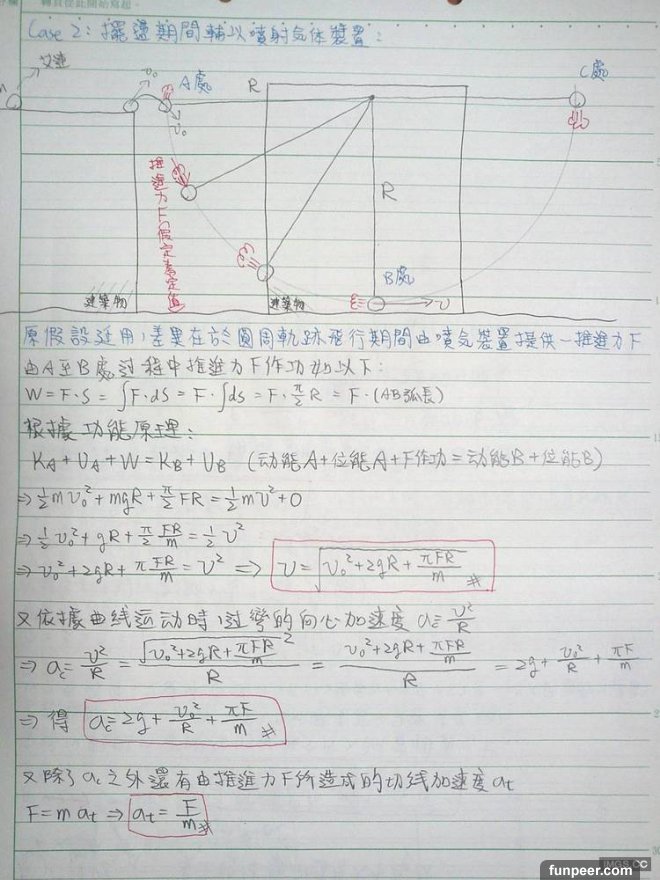 Case 2: 擺盪期間輔以噴射气体裝置:
艾連
v₀
A處
v₀
R
C處
推進力F(假定為定值)
R
B處
v
建築物
建築物
原假設延用，差異在於圓周軌跡飛行期間由噴气裝置提供一推進力F
由A至B處过程中推進力F作功如以下:
W = F·S = ∫F·dS = F·∫ds = F·π/2 R = F·(AB弧長)
根據功能原理:
K_A + U_A + W = K_B + U_B (动能A+位能A+F作功=动能B+位能B)
⇒ ½mv₀² + mgR + π/2 FR = ½mv² + 0
⇒ ½v₀² + gR + π/2 FR/m = ½v²
⇒ v₀² + 2gR + πFR/m = v² ⇒ v = √(v₀² + 2gR + πFR/m) #
又依據曲线运动時，过彎的向心加速度 a_c = v²/R
⇒ a_c = v²/R = √(v₀² + 2gR + πFR/m)²/R = (v₀² + 2gR + πFR/m)/R = 2g + v₀²/R + πF/m
⇒ 得 a_c = 2g + v₀²/R + πF/m #
又除了a_c之外還有由推進力F所造成的切线加速度a_t
F = m a_t ⇒ a_t = F/m #
IMGS.CC
funpeer.com